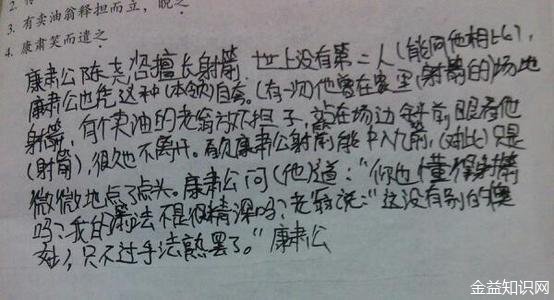 3. 有卖油翁释担而立，睨之
4. 康肃笑而遣之
康肃公陈尧咨擅长射箭，世上没有第二人(能同他相比)，
康肃公也凭这种(本领)自夸。(有一次)他曾在家里(射箭的)场地
射箭，有个卖油的老翁放下担子，站在场边斜前眼看他
(射箭)，很久也不离开。康肃公射箭能中八九箭，(对此)只是
微微地点了点头。康肃公问(他)道："你也懂得射箭
吗？我的箭法不是很精深吗？老翁说："这没有别的奥
妙，只不过手法熟罢了。"康肃公
金益知识网